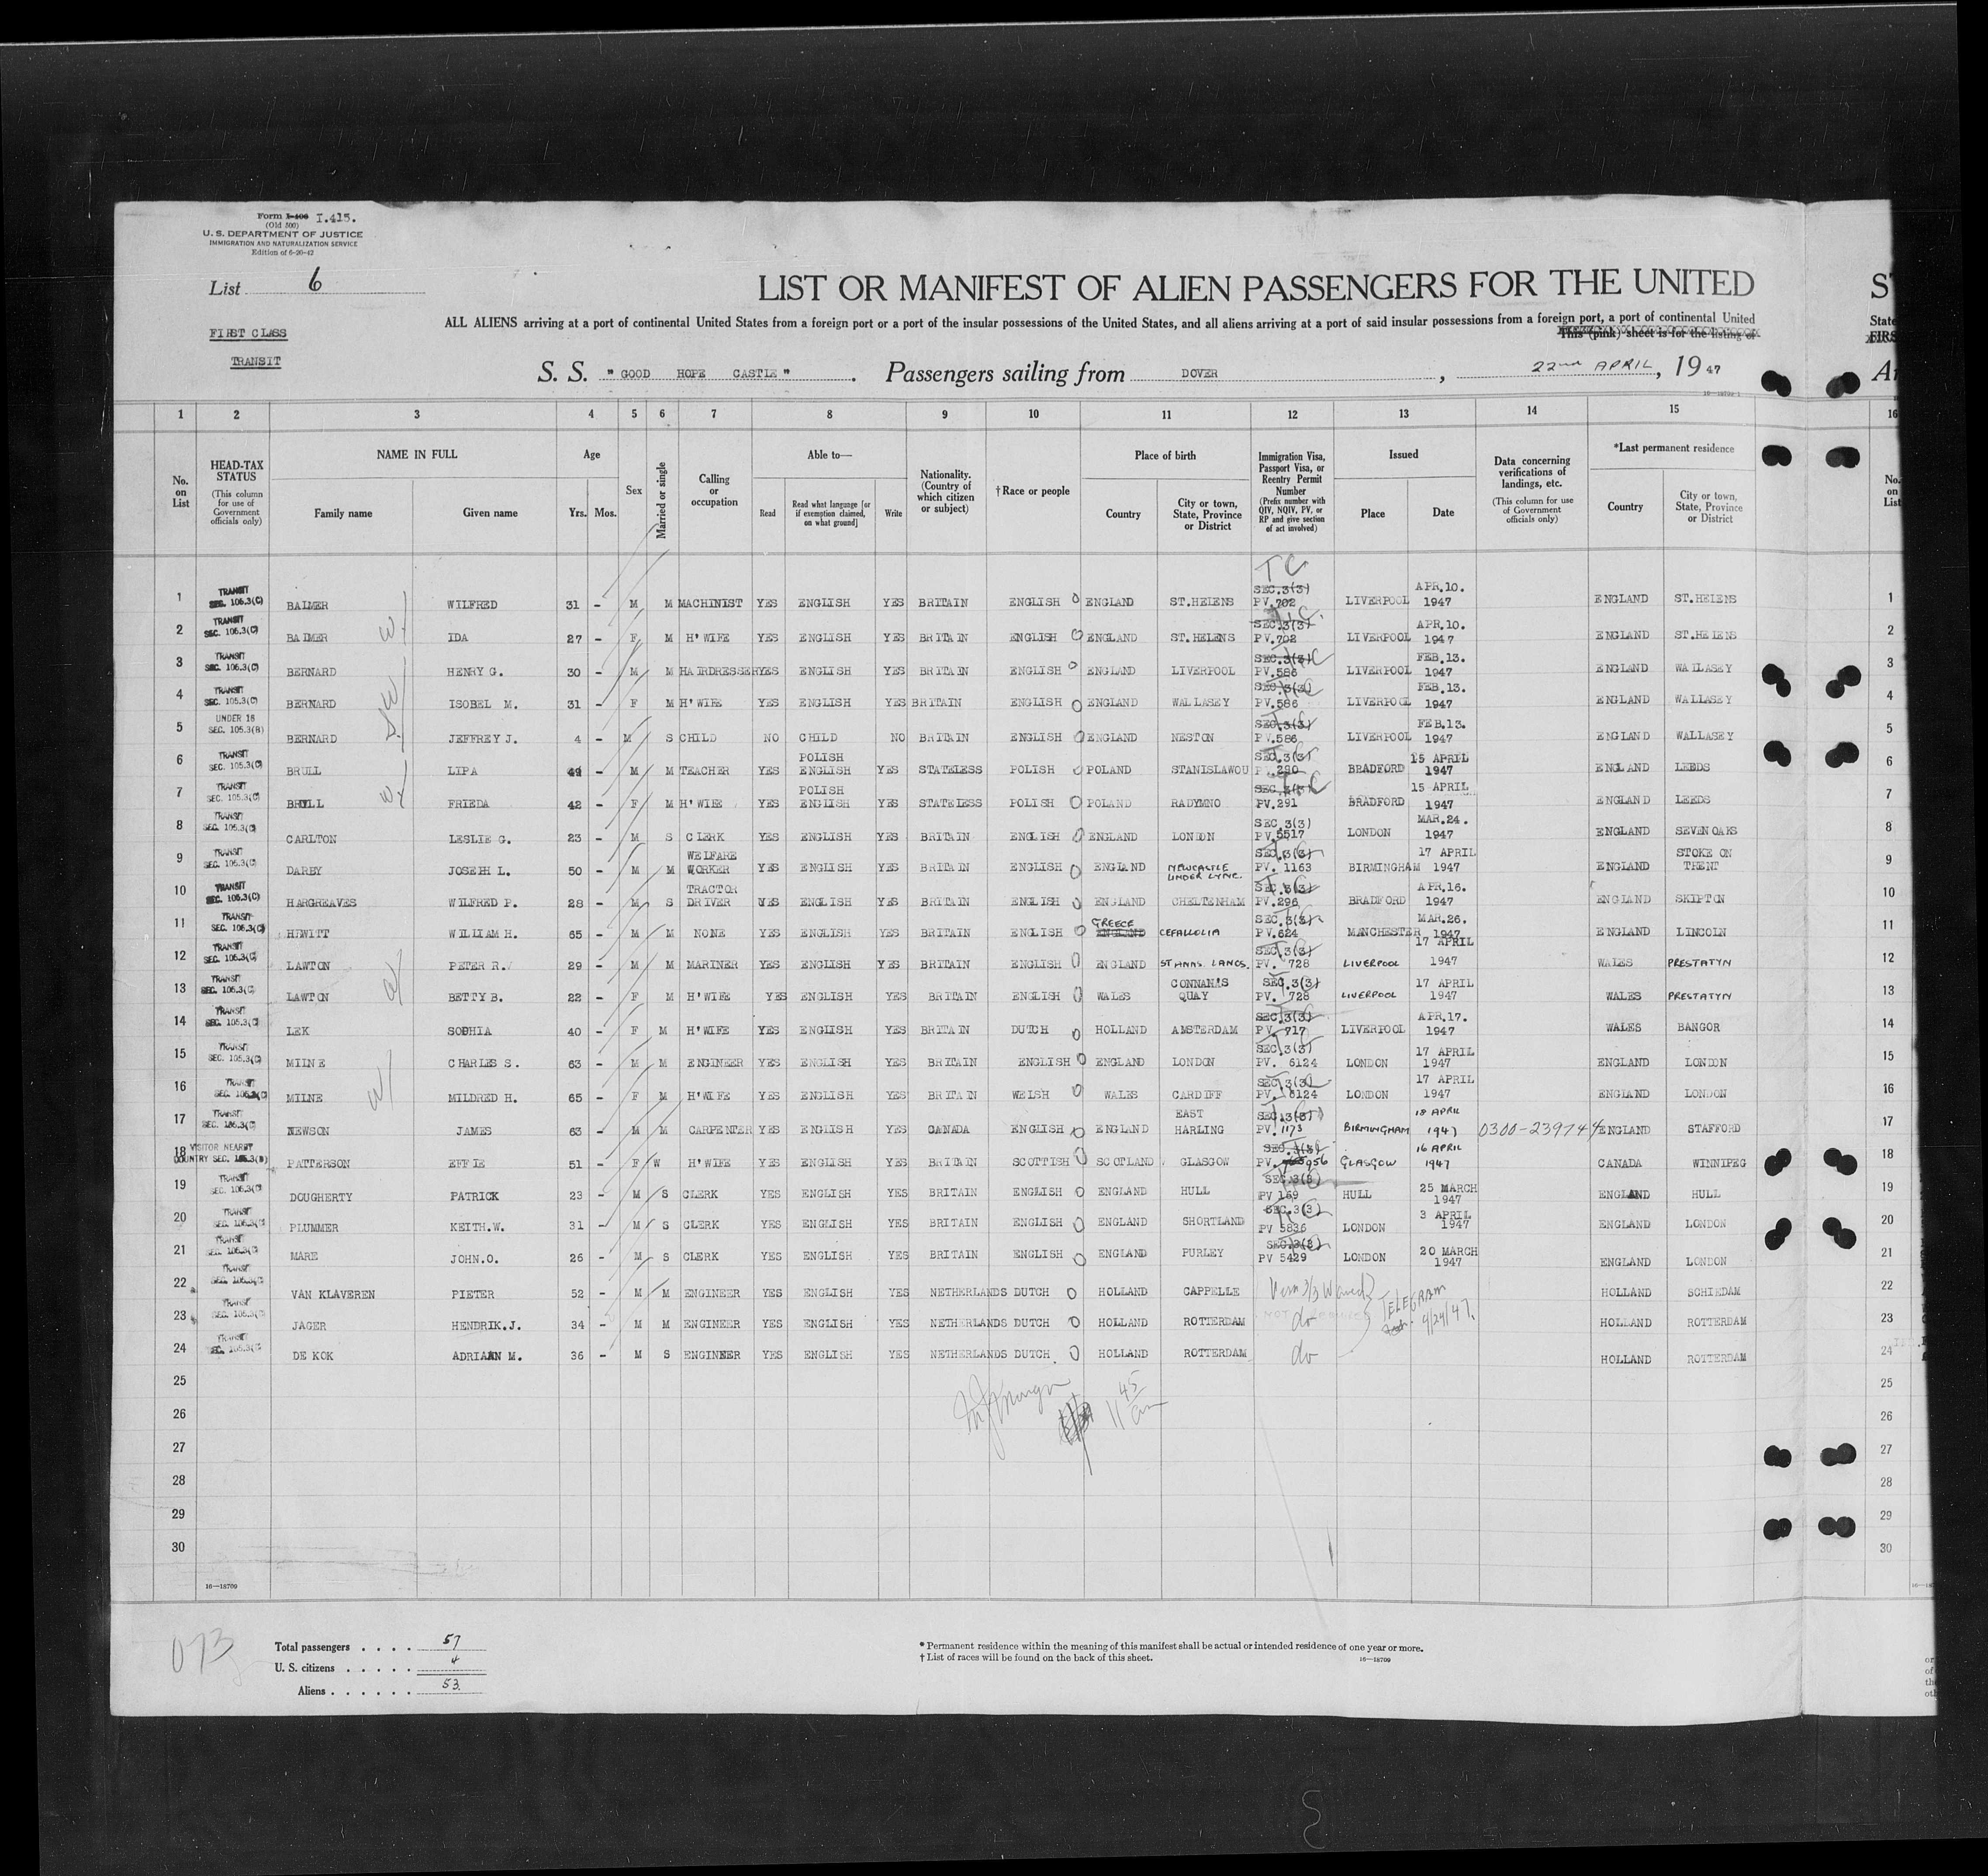 Form I-406 I.415.
(Old 500)
U. S. DEPARTMENT OF JUSTICE
IMMIGRATION AND NATURALIZATION SERVICE
Edition of 6-20-42
List 6
LIST OR MANIFEST OF ALIEN PASSENGERS FOR THE UNITED
FIRST CLASS
TRANSIT
ALL ALIENS arriving at a port of continental United States from a foreign port or a port of the insular possessions of the United States, and all aliens arriving at a port of said insular possessions from a foreign port, a port of continental United
This (pink) sheet is for the listing of
S. S. "GOOD HOPE CASTLE". Passengers sailing from DOVER, 22nd APRIL, 1947
1 2 3 4 5 6 7 8 9 10 11 12 13 14 15 16
No. on List
HEAD-TAX STATUS (This column for use of Government officials only)
NAME IN FULL Family name Given name
Age Yrs. Mos.
Sex
Married or single
Calling or occupation
Able to— Read Read what language [or if exemption claimed, on what ground] Write
Nationality. (Country of which citizen or subject)
†Race or people
Place of birth Country City or town, State, Province or District
Immigration Visa, Passport Visa, or Reentry Permit Number (Prefix number with QIV, NQIV, PV, or RP and give section of act involved)
Issued Place Date
Data concerning verifications of landings, etc. (This column for use of Government officials only)
*Last permanent residence Country City or town, State, Province or District
No. on List
1 TRANSIT SEC. 105.3(C) BALMER WILFRED 31 - M M MACHINIST YES ENGLISH YES BRITAIN ENGLISH ENGLAND ST.HELENS TC SEC.3(3) PV.702 LIVERPOOL APR.10. 1947 ENGLAND ST.HELENS 1
2 TRANSIT SEC. 105.3(C) BALMER IDA 27 - F M H'WIFE YES ENGLISH YES BRITAIN ENGLISH ENGLAND ST.HELENS SEC.3(3) PV.702 LIVERPOOL APR.10. 1947 ENGLAND ST.HELENS 2
3 TRANSIT SEC. 105.3(C) BERNARD HENRY G. 30 - M M HAIRDRESSER YES ENGLISH YES BRITAIN ENGLISH ENGLAND LIVERPOOL SEC.3(3) PV.586 LIVERPOOL FEB.13. 1947 ENGLAND WALLASEY 3
4 TRANSIT SEC. 105.3(C) BERNARD ISOBEL M. 31 - F M H'WIFE YES ENGLISH YES BRITAIN ENGLISH ENGLAND WALLASEY SEC.3(3) PV.586 LIVERPOOL FEB.13. 1947 ENGLAND WALLASEY 4
5 UNDER 16 SEC. 105.3(B) BERNARD JEFFREY J. 4 - M S CHILD NO CHILD NO BRITAIN ENGLISH ENGLAND NESTON SEC.3(3) PV.586 LIVERPOOL FEB.13. 1947 ENGLAND WALLASEY 5
6 TRANSIT SEC. 105.3(C) BRULL LIPA - M M TEACHER YES POLISH ENGLISH YES STATELESS POLISH POLAND STANISLAWOU SEC.3(3) 290 BRADFORD 15 APRIL 1947 ENGLAND LEEDS 6
7 TRANSIT SEC. 105.3(C) BRULL FRIEDA 42 - F M H'WIFE YES POLISH ENGLISH YES STATELESS POLISH POLAND RADYMNO SEC.3(3) PV.291 BRADFORD 15 APRIL 1947 ENGLAND LEEDS 7
8 TRANSIT SEC. 105.3(C) CARLTON LESLIE G. 23 - M S CLERK YES ENGLISH YES BRITAIN ENGLISH ENGLAND LONDON SEC.3(3) PV.5517 LONDON MAR.24. 1947 ENGLAND SEVENOAKS 8
9 TRANSIT SEC. 105.3(C) DARBY JOSEPH L. 50 - M M WELFARE WORKER YES ENGLISH YES BRITAIN ENGLISH ENGLAND NEWCASTLE UNDER LYNE. SEC.3(3) PV. 1163 BIRMINGHAM 17 APRIL 1947 ENGLAND STOKE ON TRENT 9
10 TRANSIT SEC. 105.3(C) HARGREAVES WILFRED P. 28 - M S TRACTOR DRIVER YES ENGLISH YES BRITAIN ENGLISH ENGLAND CHELTENHAM SEC.3(3) PV.296 BRADFORD APR.16. 1947 ENGLAND SKIPTON 10
11 TRANSIT SEC. 105.3(C) HEWITT WILLIAM H. 65 - M M NONE YES ENGLISH YES BRITAIN ENGLISH GREECE ENGLAND CEFALLOLIA SEC.3(3) PV.624 MANCHESTER MAR.26. 1947 ENGLAND LINCOLN 11
12 TRANSIT SEC. 105.3(C) LAWTON PETER R. 29 - M M MARINER YES ENGLISH YES BRITAIN ENGLISH ENGLAND ST ANNS. LANCS. SEC.3(3) PV. 728 LIVERPOOL 17 APRIL 1947 WALES PRESTATYN 12
13 TRANSIT SEC. 105.3(C) LAWTON BETTY B. 22 - F M H'WIFE YES ENGLISH YES BRITAIN ENGLISH WALES CONNAH'S QUAY SEC.3(3) PV. 728 LIVERPOOL 17 APRIL 1947 WALES PRESTATYN 13
14 TRANSIT SEC. 105.3(C) LEK SOPHIA 40 - F M H'WIFE YES ENGLISH YES BRITAIN DUTCH HOLLAND AMSTERDAM SEC.3(3) PV. 717 LIVERPOOL APR.17. 1947 WALES BANGOR 14
15 TRANSIT SEC. 105.3(C) MILNE CHARLES S. 63 - M M ENGINEER YES ENGLISH YES BRITAIN ENGLISH ENGLAND LONDON SEC.3(3) PV. 6124 LONDON 17 APRIL 1947 ENGLAND LONDON 15
16 TRANSIT SEC. 105.3(C) MILNE MILDRED H. 65 - F M H'WIFE YES ENGLISH YES BRITAIN WELSH WALES CARDIFF SEC.3(3) PV. 6124 LONDON 17 APRIL 1947 ENGLAND LONDON 16
17 TRANSIT SEC. 105.3(C) NEWSON JAMES 63 - M M CARPENTER YES ENGLISH YES CANADA ENGLISH ENGLAND EAST HARLING SEC.3(3) PV. 1173 BIRMINGHAM 18 APRIL 1947 0300-239744 ENGLAND STAFFORD 17
18 VISITOR NEARBY COUNTRY SEC. 105.3(B) PATTERSON EFFIE 51 - F W H'WIFE YES ENGLISH YES BRITAIN SCOTTISH SCOTLAND GLASGOW SEC.3(3) PV. 956 GLASGOW 16 APRIL 1947 CANADA WINNIPEG 18
19 TRANSIT SEC. 105.3(C) DOUGHERTY PATRICK 23 - M S CLERK YES ENGLISH YES BRITAIN ENGLISH ENGLAND HULL SEC.3(3) PV 169 HULL 25 MARCH 1947 ENGLAND HULL 19
20 TRANSIT SEC. 105.3(C) PLUMMER KEITH.W. 31 - M S CLERK YES ENGLISH YES BRITAIN ENGLISH ENGLAND SHORTLAND SEC.3(3) PV 5836 LONDON 3 APRIL 1947 ENGLAND LONDON 20
21 TRANSIT SEC. 105.3(C) MARE JOHN.O. 26 - M S CLERK YES ENGLISH YES BRITAIN ENGLISH ENGLAND PURLEY SEC.3(3) PV 5429 LONDON 20 MARCH 1947 ENGLAND LONDON 21
22 TRANSIT SEC. 105.3(C) VAN KLAVEREN PIETER 52 - M M ENGINEER YES ENGLISH YES NETHERLANDS DUTCH HOLLAND CAPPELLE Visa 3/3 Waived TELEGRAM 4/24/47. HOLLAND SCHIEDAM 22
23 TRANSIT SEC. 105.3(C) JAGER HENDRIK.J. 34 - M M ENGINEER YES ENGLISH YES NETHERLANDS DUTCH HOLLAND ROTTERDAM do HOLLAND ROTTERDAM 23
24 TRANSIT SEC. 105.3(C) DE KOK ADRIAAN M. 36 - M S ENGINEER YES ENGLISH YES NETHERLANDS DUTCH HOLLAND ROTTERDAM do HOLLAND ROTTERDAM 24
25 25
11 45 am
26 26
27 27
28 28
29 29
30 30
16—18709
073
Total passengers . . . . 57
U. S. citizens . . . . . 4
Aliens . . . . . . 53.
* Permanent residence within the meaning of this manifest shall be actual or intended residence of one year or more.
† List of races will be found on the back of this sheet.
16—18709